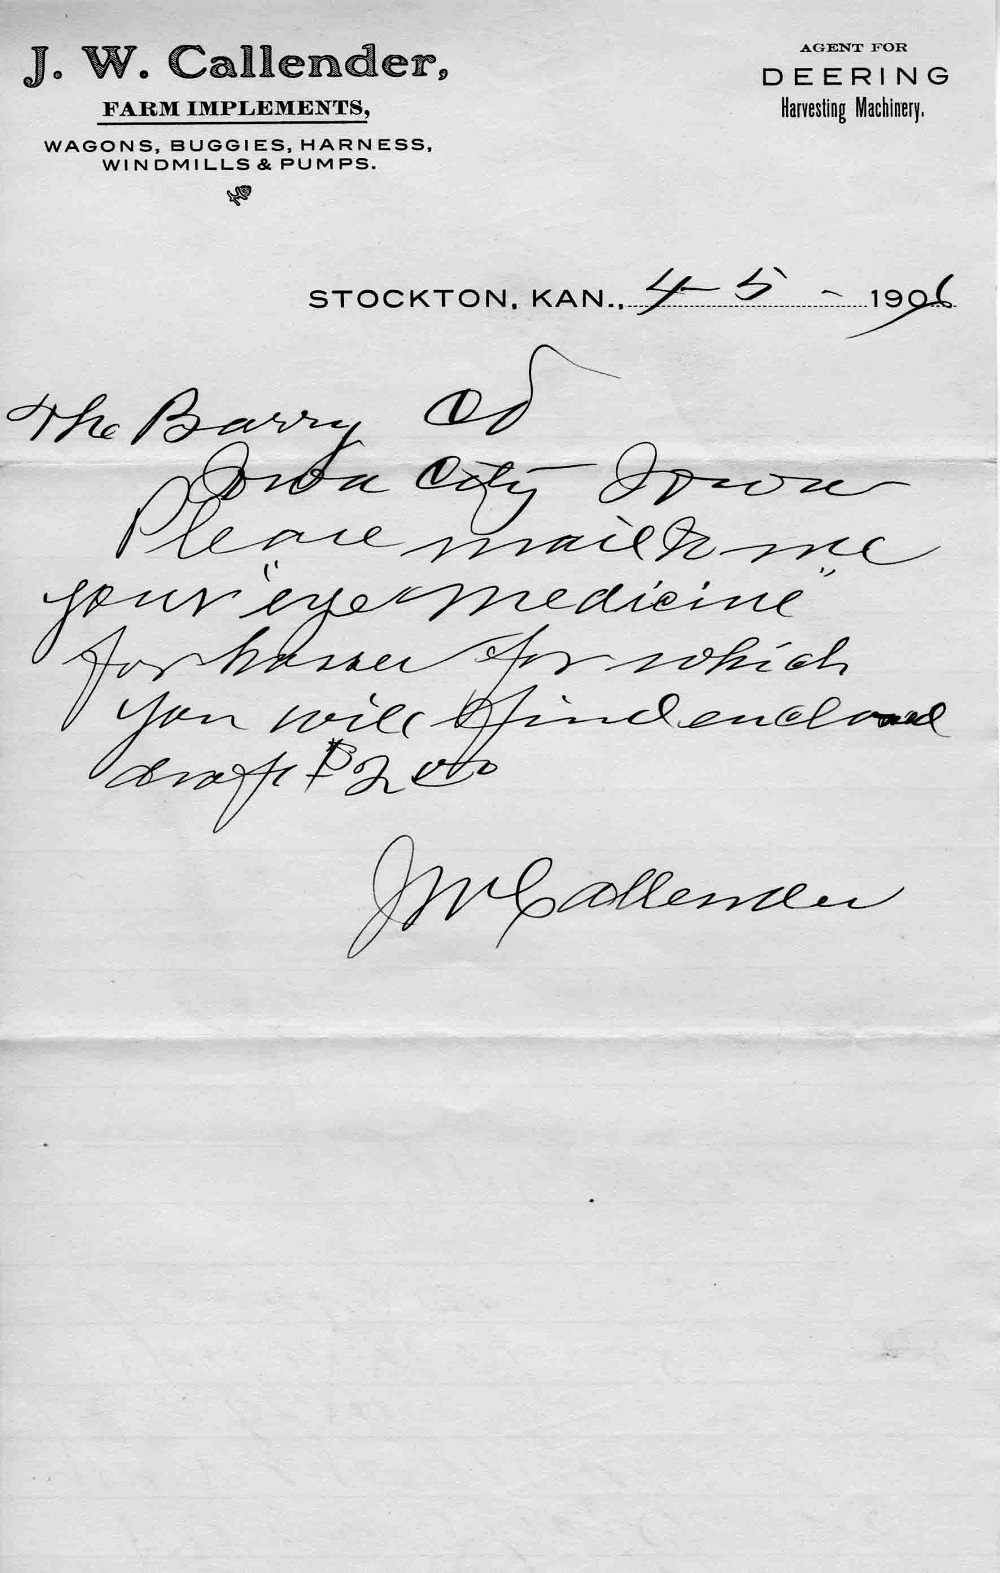 J. W. Callender,
FARM IMPLEMENTS,
WAGONS, BUGGIES, HARNESS,
WINDMILLS & PUMPS.
AGENT FOR
DEERING
Harvesting Machinery.
STOCKTON, KAN., 4-5- 1906
The Barry Co
Iowa City Iowa
Please mail to me
your "eye medicine"
for horses for which
you will find enclosed
draft $2 00
JW Callender